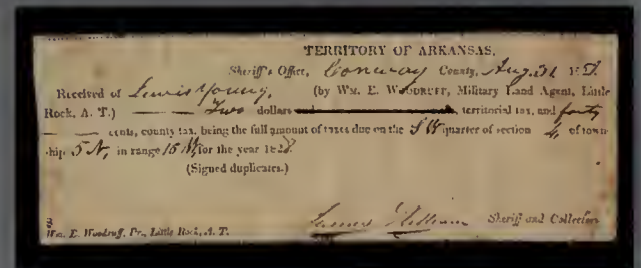 TERRITORY OF ARKANSAS.
Sheriff's Office, Conway County, Aug. 31
Received of Lewis Young, (by WM. E. WOODRUFF, Military Land Agent, Little
Rock, A. T.) Two dollars territorial tax, and forty
cents, county tax, being the full amount of taxes due on the S W quarter of section 4, of town-
ship 5 N, in range 16 W, for the year 1828.
(Signed duplicates.)
James Sheriff and Collector
Wm. E. Woodruff, Pr., Little Rock, A. T.